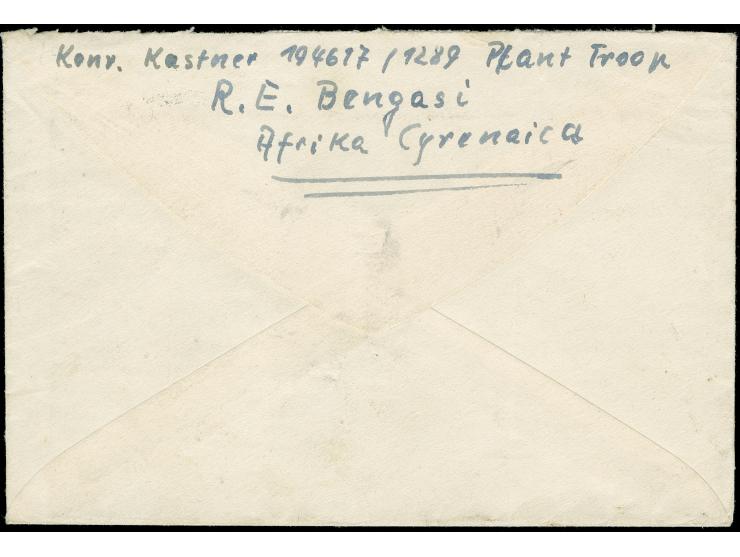 Konr. Kastner 194617 / 1289 Plant Troop
R. E. Bengasi
Afrika Cyrenaica